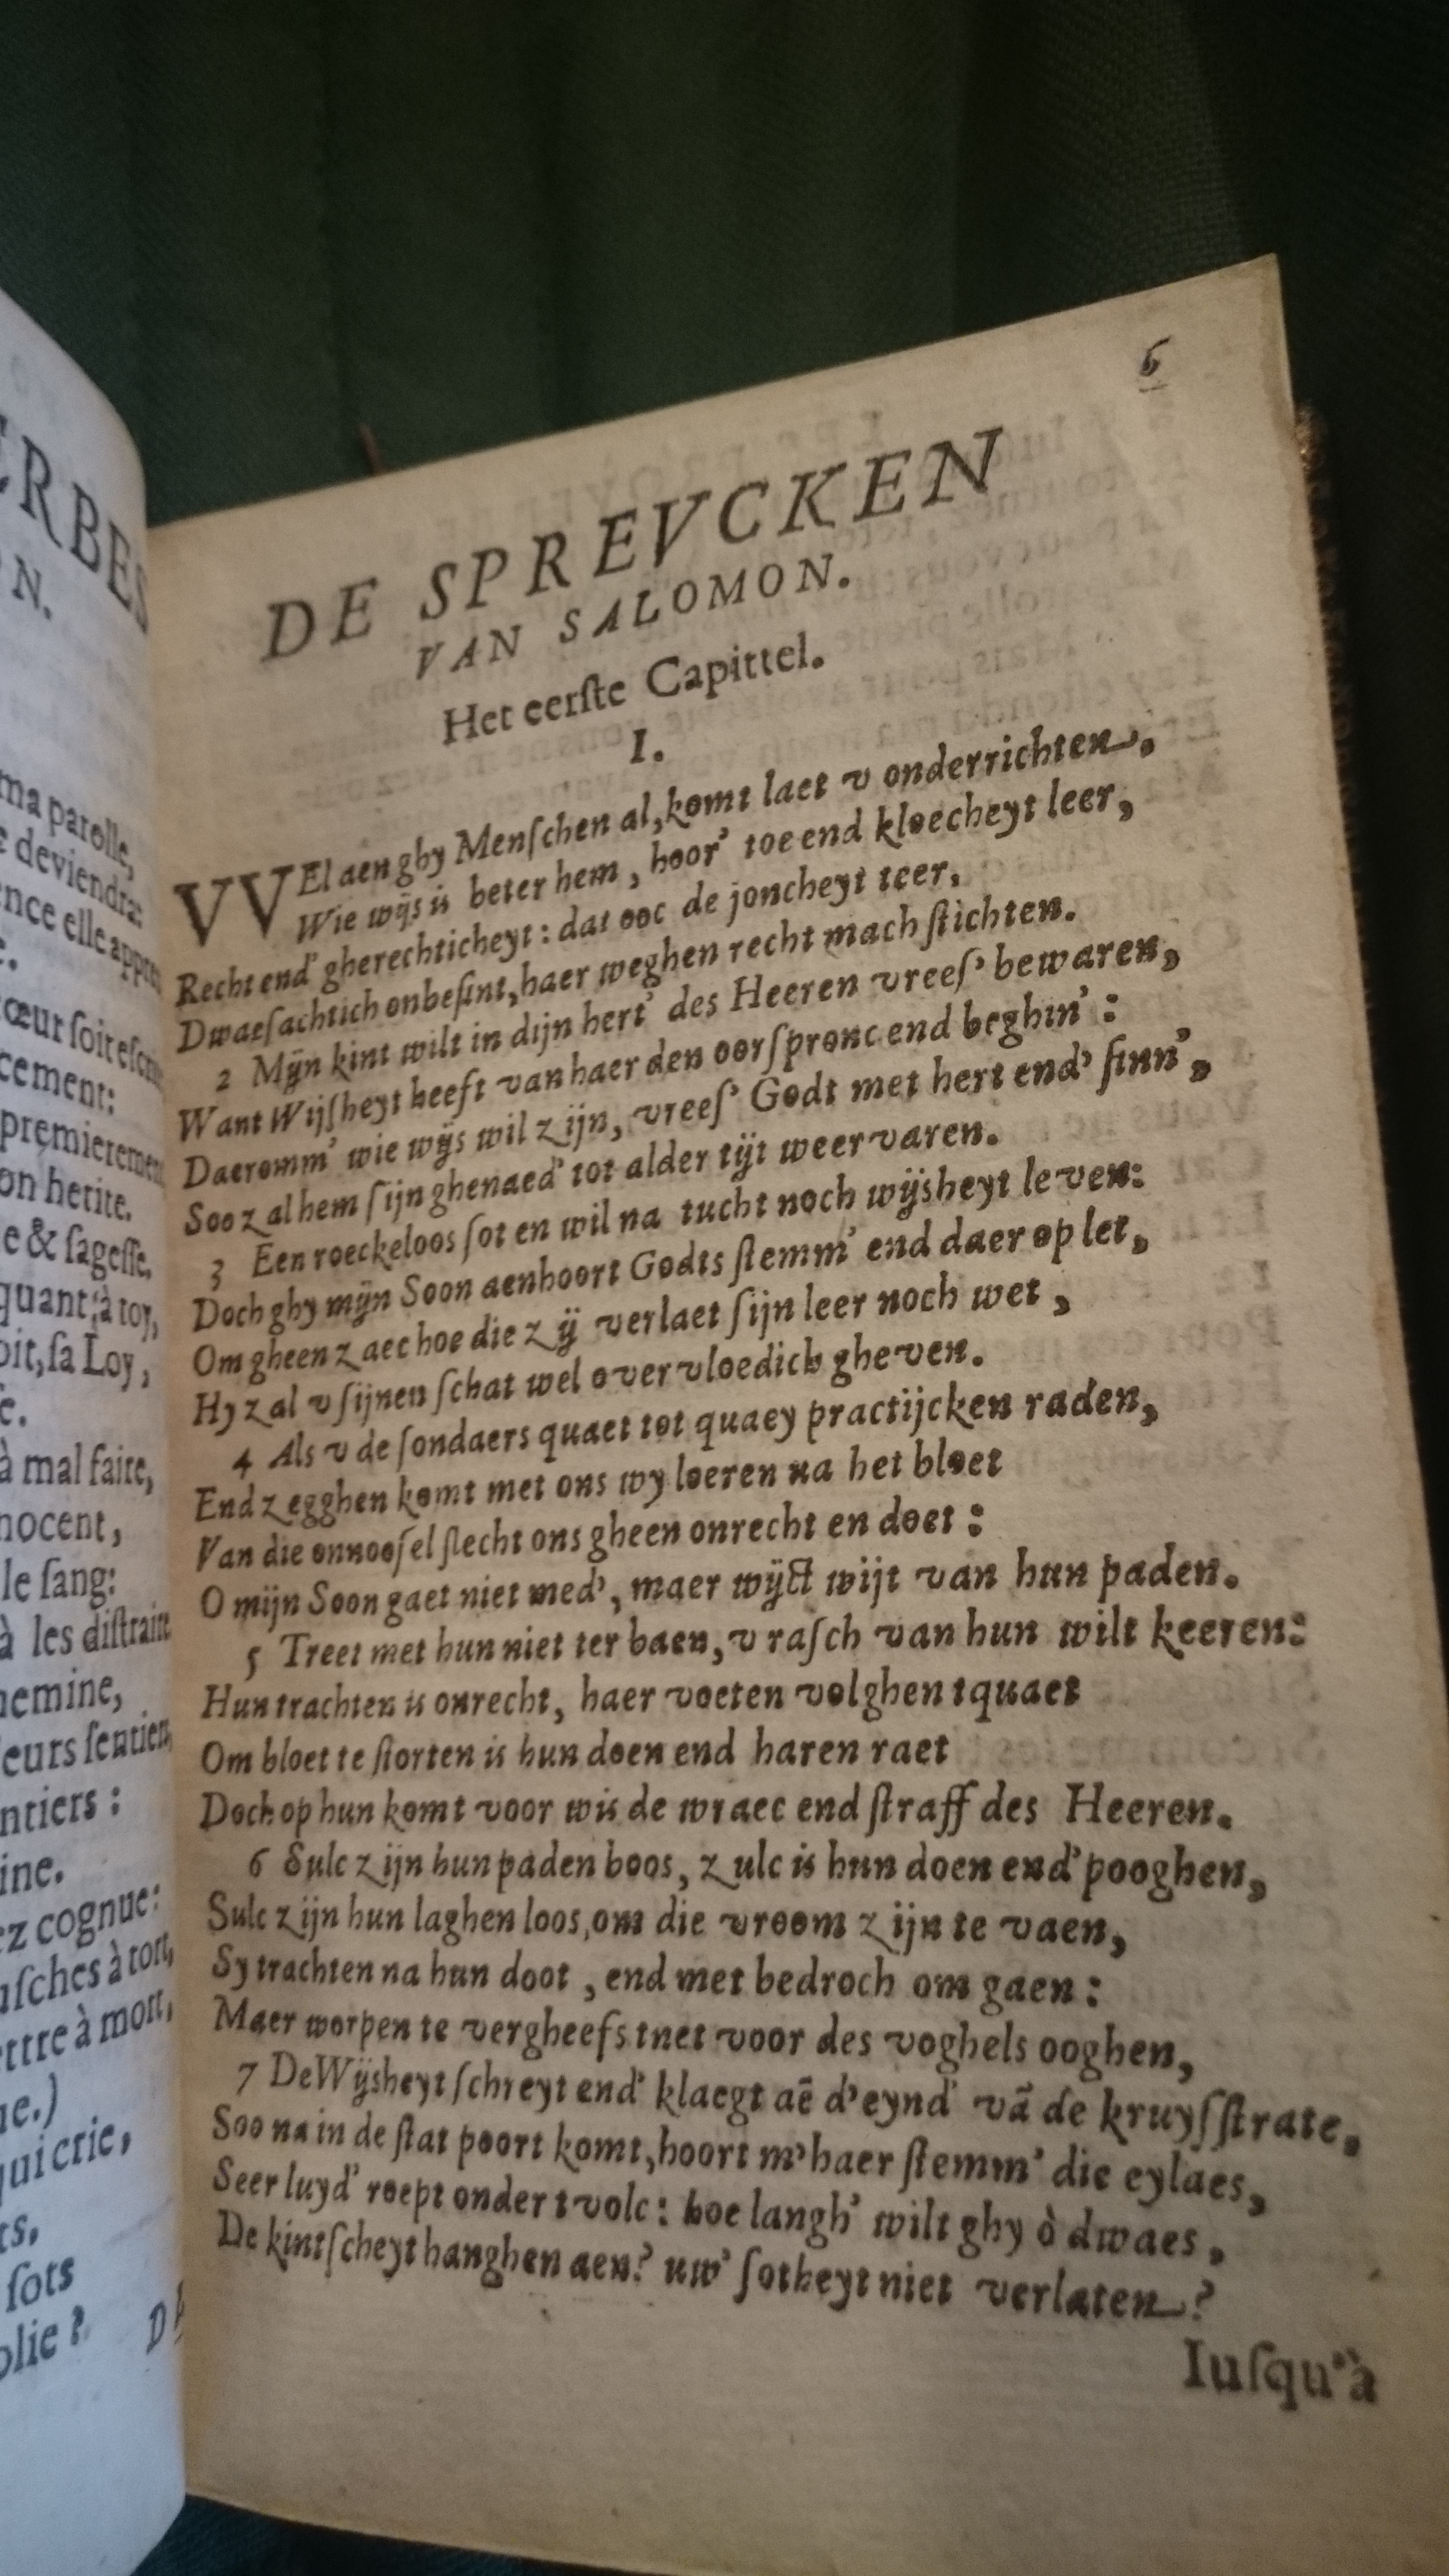 ERBES
N.
ma parolle,
deviendra:
ence elle
cœur soit
cement:
premierement
on herite.
e & sagesse.
quant à toy,
oit, sa Loy,
à mal faire,
nocent,
le sang:
à les distraire
nemine,
leurs sentiers
ntiers :
ine.
ez cognue:
usches à tort,
ettre à mort,
ue.)
qui crie,
ts.
sots
olie ?
6
DE SPREVCKEN
VAN SALOMON.
Het eerſte Capittel.
I.
VVEl aen ghy Menſchen al, komt laet v onderrichten,
Wie wijs is beter hem, hoor’ toe end kloecheyt leer,
Recht end’ gherechticheyt: dat ooc de joncheyt teer,
Dwaeſachtich onbeſint, haer weghen recht mach ſtichten.
2 Mijn kint wilt in dijn hert’ des Heeren vreeſ’ bewaren,
Want Wijſheyt heeft van haer den oorſpronc end beghin’:
Daeromm’ wie wijs wil zijn, vreeſ’ Godt met hert end’ ſinn’,
Soo zal hem ſijn ghenaed’ tot alder tijt weervaren.
3 Een roeckeloos ſot en wil na tucht noch wijsheyt leven:
Doch ghy mijn Soon aenhoort Godts ſtemm’ end daer op let,
Om gheen zaec hoe die zij verlaet ſijn leer noch wet,
Hy zal v ſijnen ſchat wel overvloedich gheven.
4 Als v de ſondaers quaet tot quaey practijcken raden,
End zegghen komt met ons wy loeren na het bloet
Van die onnooſel ſlecht ons gheen onrecht en doet :
O mijn Soon gaet niet med’, maer wijct wijt van hun paden.
5 Treet met hun niet ter baen, v raſch van hun wilt keeren:
Hun trachten is onrecht, haer voeten volghen tquaet
Om bloet te ſtorten is hun doen end haren raet
Doch op hun komt voor wis de wraec end ſtraff des Heeren.
6 Sulc zijn hun paden boos, zulc is hun doen end’ pooghen,
Sulc zijn hun laghen loos, om die vroom zijn te vaen,
Sy trachten na hun doot, end met bedroch om gaen :
Maer worpen te vergheefs tnet voor des voghels ooghen,
7 De Wijsheyt ſchreyt end’ klaegt aē d’eynd’ vā de kruyſſtrate,
Soo na in de ſtat poort komt, hoort m’ haer ſtemm’ die eylaes,
Seer luyd’ roept onder tvolc: hoe langh’ wilt ghy ò dwaes,
De kintſcheyt hanghen aen? uw’ ſotheyt niet verlaten?
Iuſqu’à